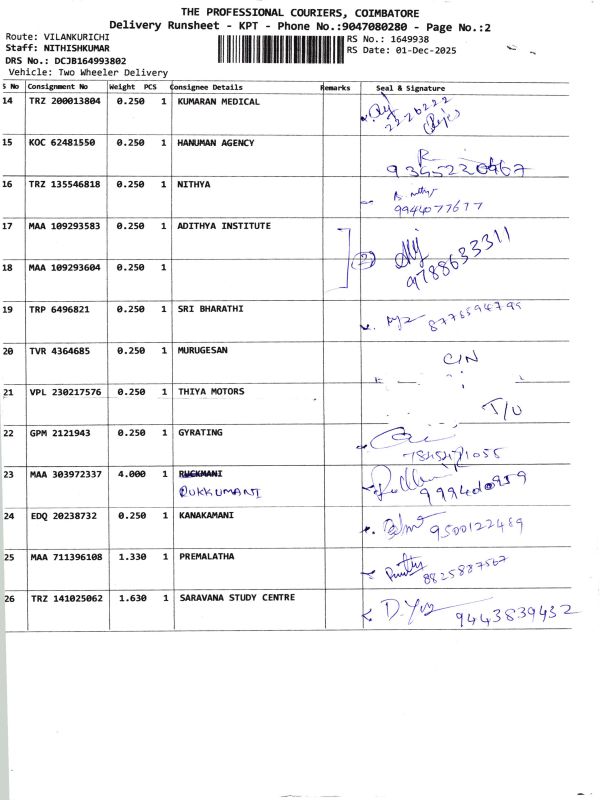 THE PROFESSIONAL COURIERS, COIMBATORE
Delivery Runsheet - KPT - Phone No.:9047080280 - Page No.:2
Route: VILANKURICHI
RS No.: 1649938
Staff: NITHISHKUMAR
RS Date: 01-Dec-2025
DRS No.: DCJB164993802
Vehicle: Two Wheeler Delivery
S No Consignment No Weight PCS Consignee Details Remarks Seal & Signature
14 TRZ 200013804 0.250 1 KUMARAN MEDICAL
15 KOC 62481550 0.250 1 HANUMAN AGENCY
R
16 TRZ 135546818 0.250 1 NITHYA
9944077677
17 MAA 109293583 0.250 1 ADITHYA INSTITUTE
2
9788633311
18 MAA 109293604 0.250 1
19 TRP 6496821 0.250 1 SRI BHARATHI
20 TVR 4364685 0.250 1 MURUGESAN
C/N
21 VPL 230217576 0.250 1 THIYA MOTORS
T/U
22 GPM 2121943 0.250 1 GYRATING
23 MAA 303972337 4.000 1 RUCKMANI
RUKKUMANI
24 EDQ 20238732 0.250 1 KANAKAMANI
9500122489
25 MAA 711396108 1.330 1 PREMALATHA
8825887567
26 TRZ 141025062 1.630 1 SARAVANA STUDY CENTRE
9443839432